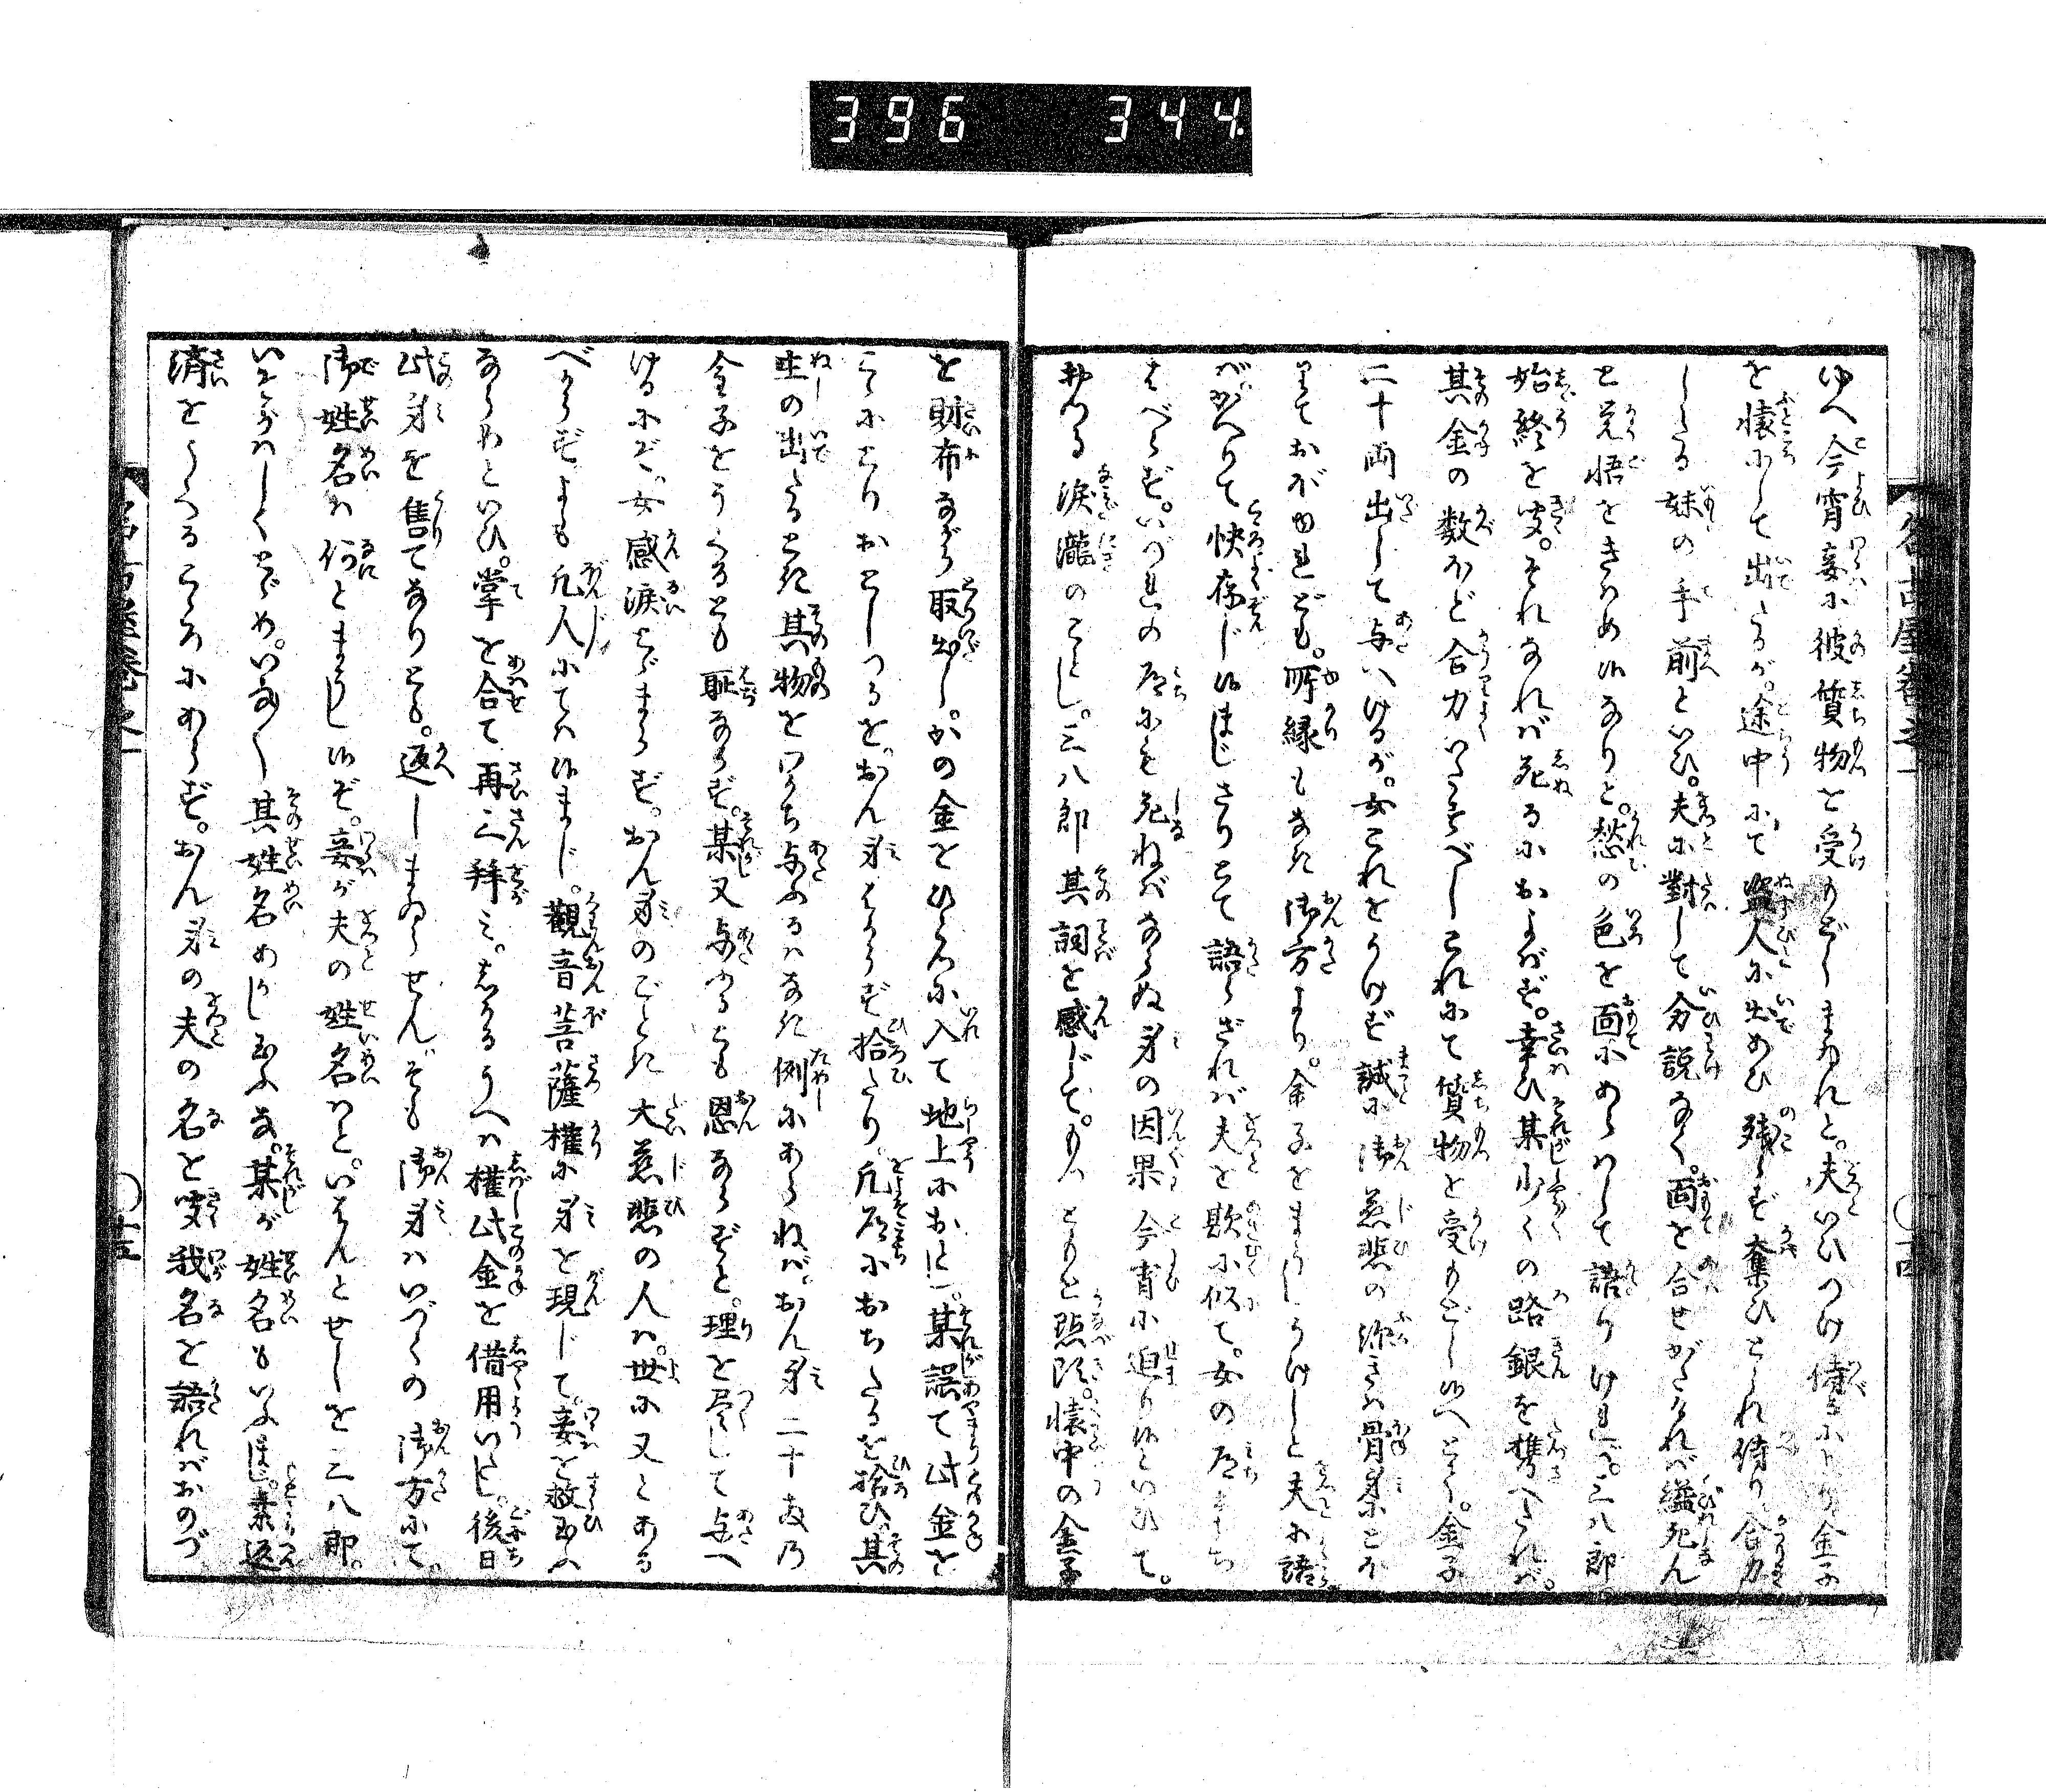 396 344
ゆへ今宵妾に彼質物を受もどしまゐれと。夫いひつけ侍るにより金子
を懐にして出たるが。途中にて盗人に出あひ残らず奪ひとられ侍り合力
したる妹の手前といひ。夫に對して分説なく。面を合せがたければ縊死ん
と覚悟をきはめ候なりと。愁の色を面にあらはして語りければ。三八郎。
始終を聞。それなれば死るにおよばず。幸ひ某少くの路銀を携へたれば。
其金の数ほど合力いたすべしこれにて質物を受もどし候へとて。金子
二十両出して与へけるが。女これをうけず誠に御慈悲の深きは骨身にとほ
りておぼゆれども。所縁もなき御方より。金子をまうしうけしと夫に語
ばかへりて快存じ候まじさりとて語らざれば夫を欺に似て。女の道たち
はべらず。いづれの道にも死ねばならぬ身の因果今宵に迫り候といひて。
おつる涙瀧のごとし。三八郎其詞を感じて。もつともと点頭。懐中の金子
を財布ながら取出し。かの金をひとつに入て地上におとし。某誤て此金を
こゝにとりおとしつるを。おん身はからず拾たり。凡道におちたるを拾ひ。其
主の出たるとき其物をわかち与ふるはなき例にあらねば。おん身二十両の
金子をうくるとも恥ならず。某又与ふるとも恩ならずと。理を尽して与へ
けるにぞ。女感涙とゞまらず。おん身のごとき大慈悲の人は。世に又とある
べからずよも凡人にては候まじ。觀音菩薩權に身を現じて。妾を救玉ふ
ならめといひ。掌を合て再三拝み。しかるうへは權此金を借用いたし。後日
此身を售てなりとも。返しまゐらせんずぞも御身はいづくの御方にて。
御姓名は何とまうし候ぞ。妾が夫の姓名はと。いはんとせしを三八郎。
いそがはしくとゞめ。いな〳〵其姓名あかし玉ふな。某が姓名もいふまじ。棄返
済をうくるこゝろにあらず。おん身の夫の名を聞我名を語ればおのづ